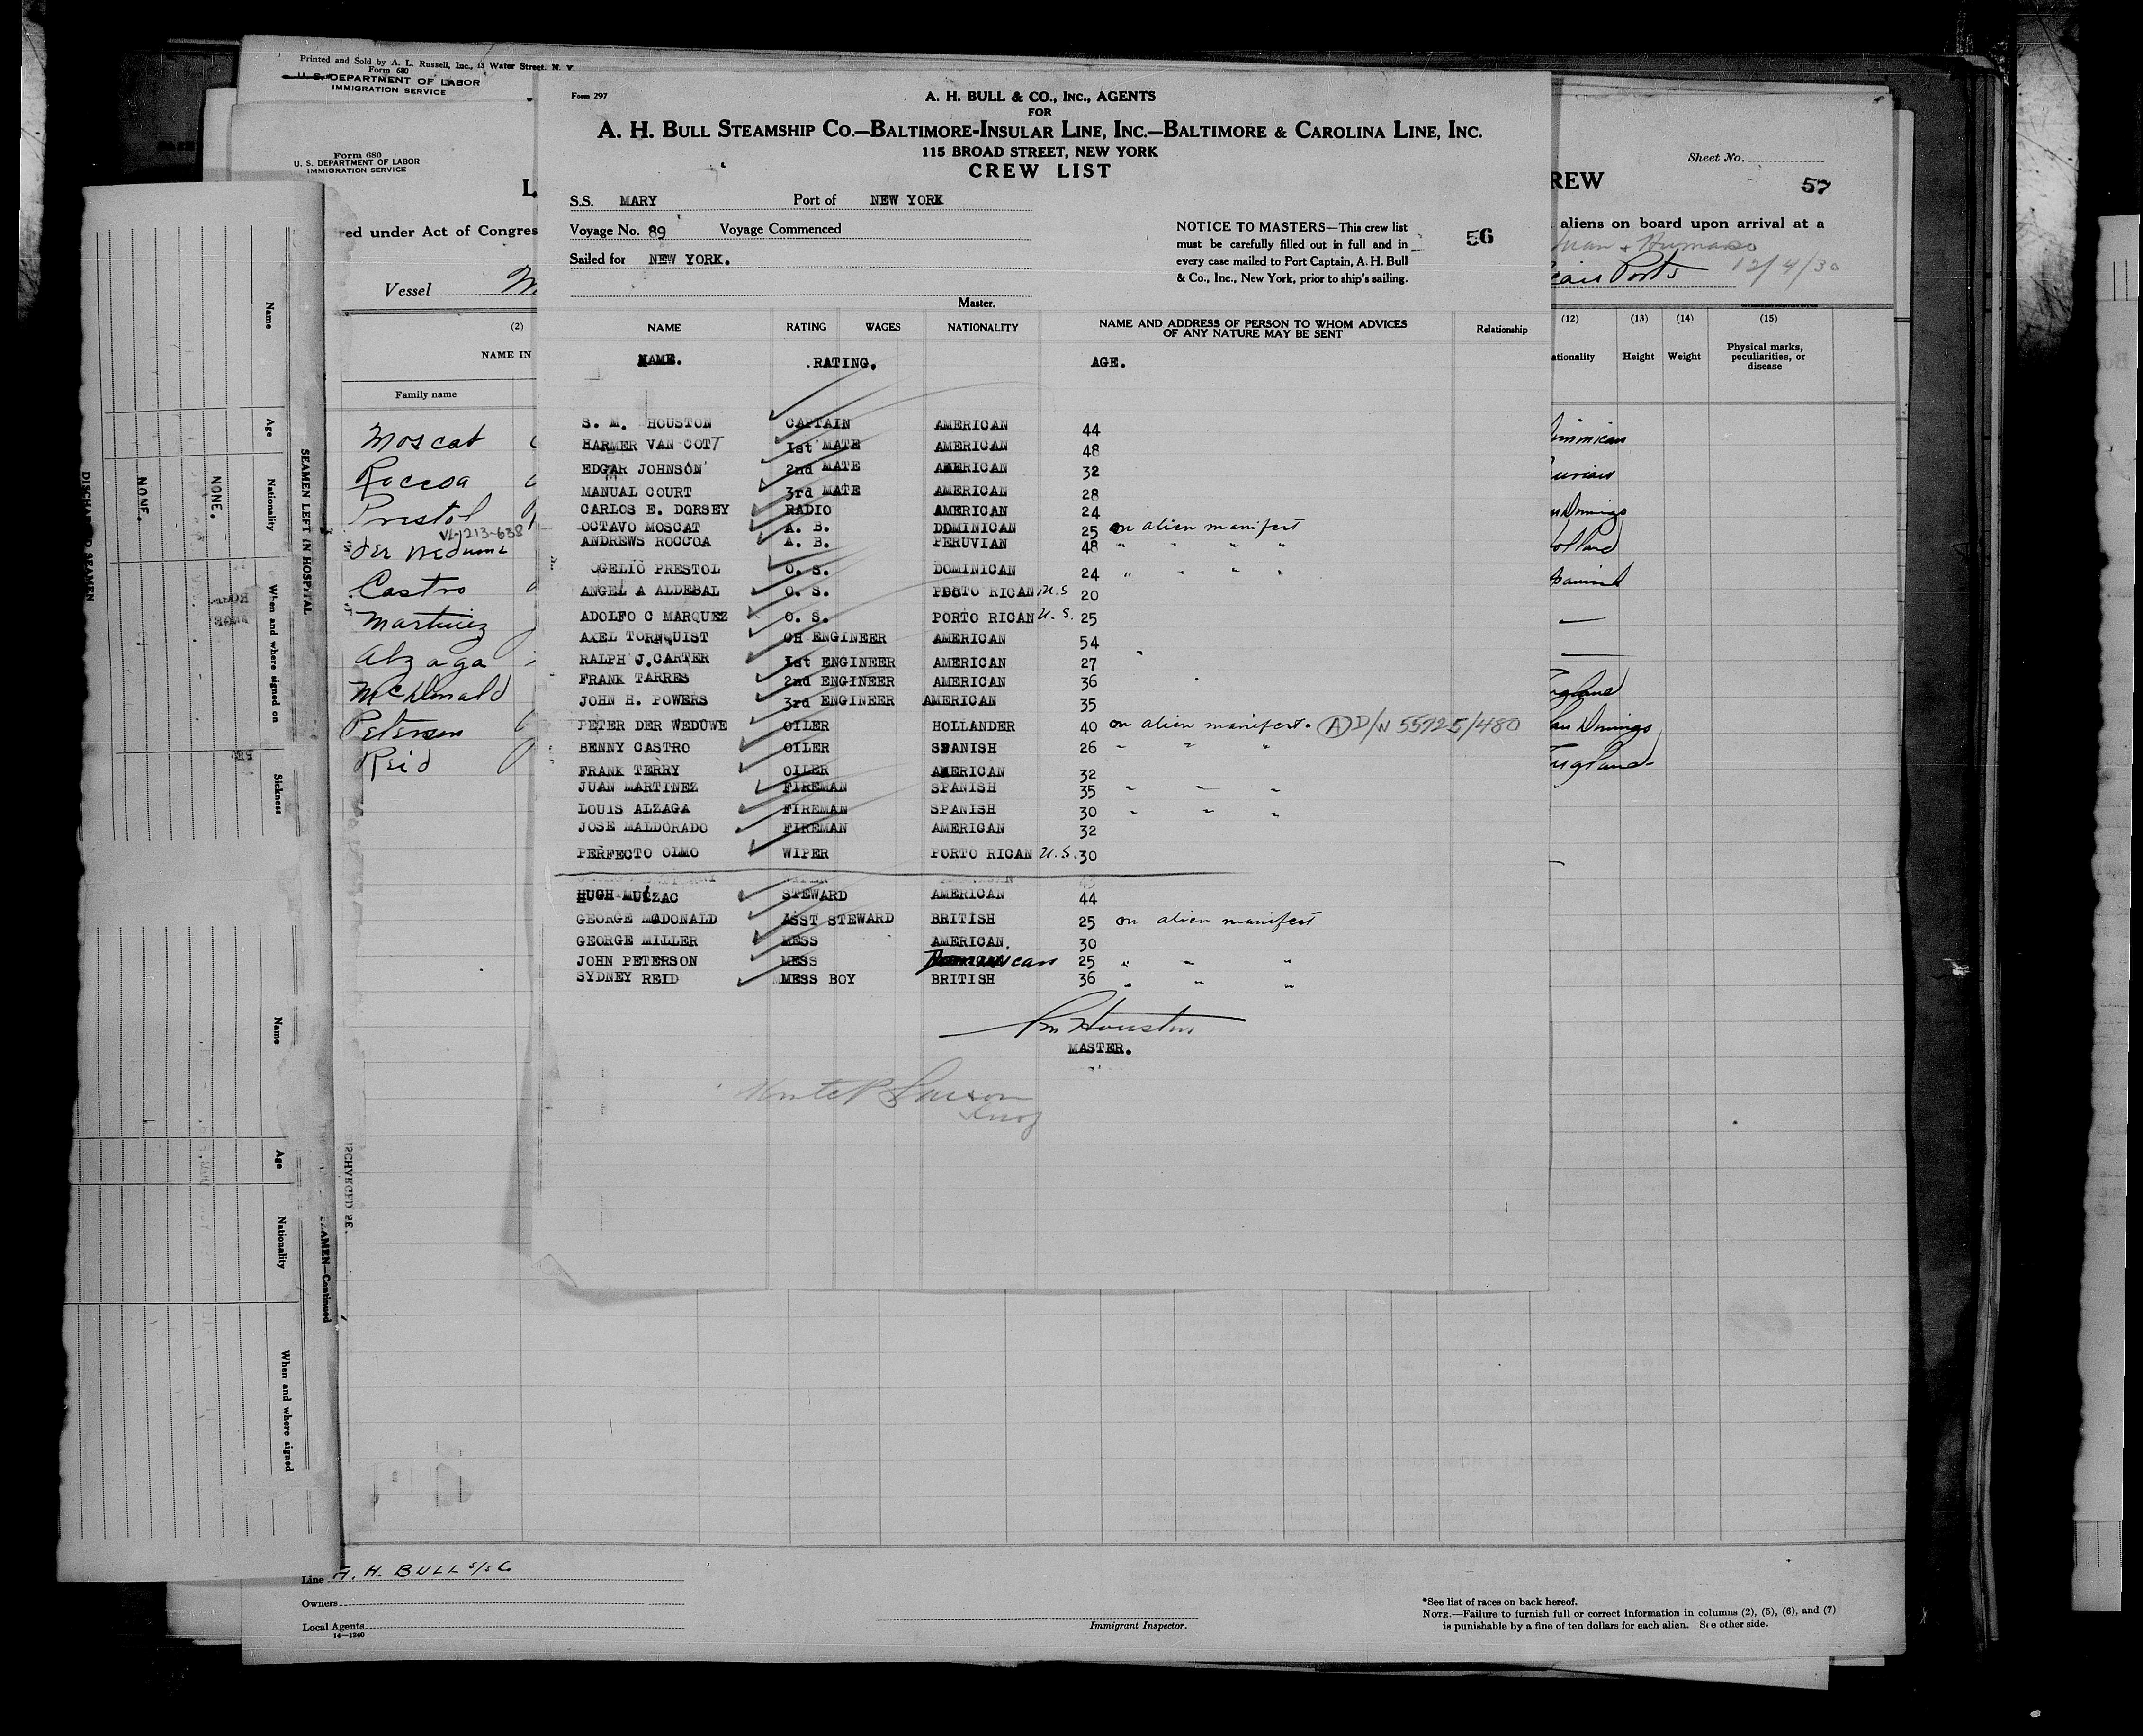 Printed and Sold by A. L. Russell, Inc., 13 Water Street. N. Y.
Form 680
U. S. DEPARTMENT OF LABOR
IMMIGRATION SERVICE
Form 680
U. S. DEPARTMENT OF LABOR
IMMIGRATION SERVICE
L
red under Act of Congres
Vessel
(2)
NAME IN
Family name
Moscat
Roccoa
Prestol
VL-1213-638
der Weduwe
Castro
Martinez
Alzaga
McDonald
Peterson
Reid
Form 297
A. H. BULL & CO., INC., AGENTS
FOR
A. H. BULL STEAMSHIP CO.—BALTIMORE-INSULAR LINE, INC.—BALTIMORE & CAROLINA LINE, INC.
115 BROAD STREET, NEW YORK
CREW LIST
S.S. MARY Port of NEW YORK
Voyage No. 89 Voyage Commenced
Sailed for NEW YORK.
Master.
NOTICE TO MASTERS—This crew list
must be carefully filled out in full and in
every case mailed to Port Captain, A. H. Bull
& Co., Inc., New York, prior to ship's sailing.
56
NAME RATING WAGES NATIONALITY NAME AND ADDRESS OF PERSON TO WHOM ADVICES OF ANY NATURE MAY BE SENT Relationship
NAME. RATING. AGE.
S. M. HOUSTON CAPTAIN AMERICAN 44
HARMER VAN COTT 1st MATE AMERICAN 48
EDGAR JOHNSON 2nd MATE AMERICAN 32
MANUAL COURT 3rd MATE AMERICAN 28
CARLOS E. DORSEY RADIO AMERICAN 24
OCTAVO MOSCAT A. B. DOMINICAN 25 on alien manifest
ANDREWS ROCCOA A. B. PERUVIAN 48 " " " "
OGELIO PRESTOL O. S. DOMINICAN 24 " " " "
ANGEL A ALDEBAL O. S. PORTO RICAN U.S 20
ADOLFO C MARQUEZ O. S. PORTO RICAN U.S. 25
AXEL TORNQUIST CH ENGINEER AMERICAN 54
RALPH J.CARTER 1st ENGINEER AMERICAN 27
FRANK TARRES 2nd ENGINEER AMERICAN 36
JOHN H. POWERS 3rd ENGINEER AMERICAN 35
PETER DER WEDUWE OILER HOLLANDER 40 on alien manifest. (A) D/W 55725/480
BENNY CASTRO OILER SPANISH 26 " " "
FRANK TERRY OILER AMERICAN 32
JUAN MARTINEZ FIREMAN SPANISH 35 " " "
LOUIS ALZAGA FIREMAN SPANISH 30 " " "
JOSE MALDORADO FIREMAN AMERICAN 32
PERFECTO OLMO WIPER PORTO RICAN U.S. 30
HUGH MULZAC STEWARD AMERICAN 44
GEORGE MADONALD ASST STEWARD BRITISH 25 on alien manifest
GEORGE MILLER MESS AMERICAN. 30
JOHN PETERSON MESS Dominican 25 " " "
SYDNEY REID MESS BOY BRITISH 36 " " "
SM Houston
MASTER.
Sheet No.
REW
57
aliens on board upon arrival at a
Juan & Humacao
Ports 12/4/30
(12) (13) (14) (15)
ationality Height Weight Physical marks, peculiarities, or disease
olland
ngland
an Domingo
ngland
DISCHARGED SEAMEN
NONE.
NONE.
SEAMEN LEFT IN HOSPITAL
Name
Age
Nationality
When and where signed on
Sickness
Name
Age
Nationality
When and where signed
SEAMEN—Continued
Line A. H. BULL S/S Co
Owners
Local Agents
14—1240
Immigrant Inspector.
*See list of races on back hereof.
NOTE.—Failure to furnish full or correct information in columns (2), (5), (6), and (7)
is punishable by a fine of ten dollars for each alien. See other side.